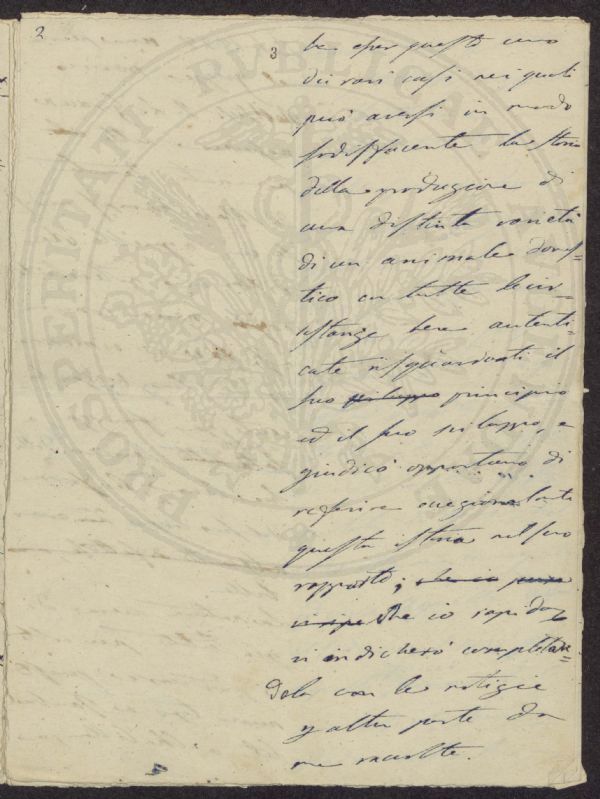 2
3
be esser questo uno
dei rari casi nei quali
può aversi in modo
sodisfacente la storia
della produzione di
una distinta varietà
di un animale dome-
stico con tutte le cir-
costanze bene autenti-
cate risguardanti il
suo sviluppo principio
ed il suo sviluppo, e
giudicò opportuno di
referire
questa istoria nel suo
rapporto;
che io rapida
vi indicherò completan-
dola con le notizie
d'altra parte da
me raccolte.
PROSPERITATI PUBLICAE